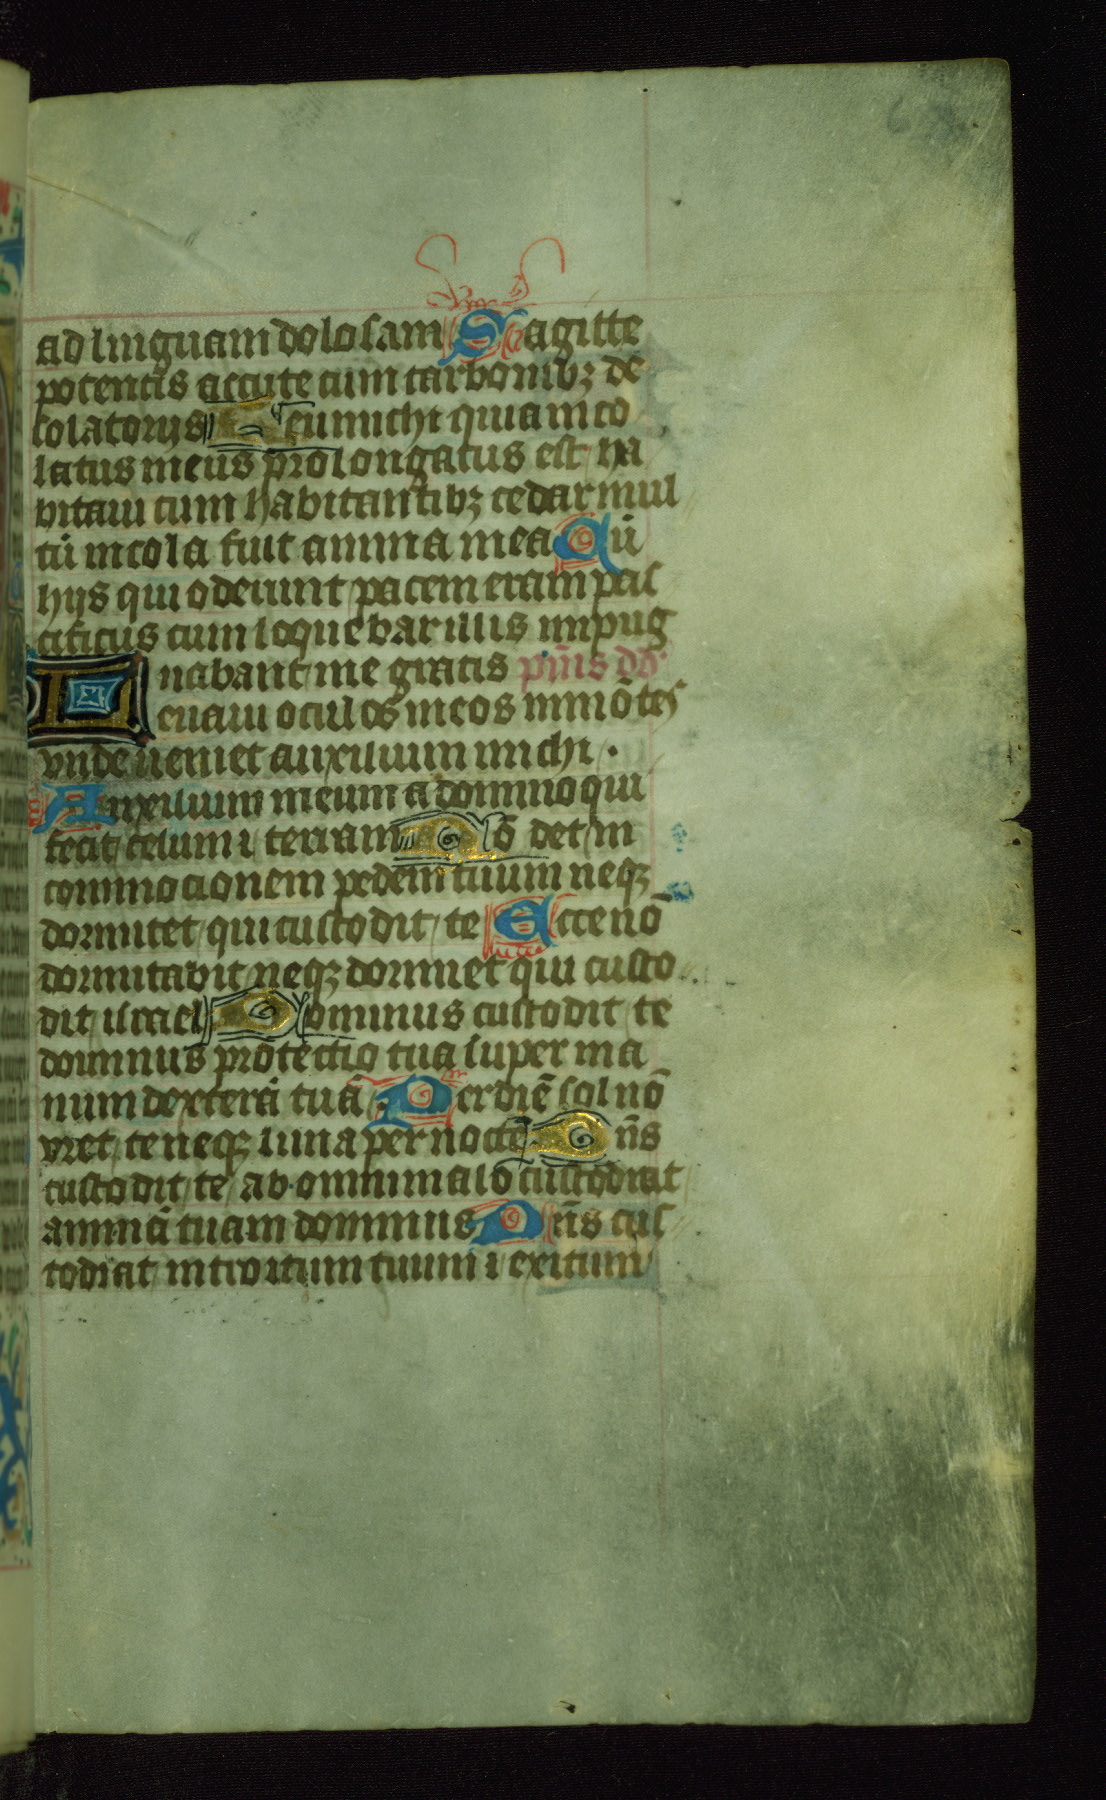 ad linguam dolosam Sagitte
potentis accute cum carbonibꝫ de
solatorijs Heu michi quia inco
latus meus prolongatus est ha
bitaui cum habitantibꝫ cedar mul
tū incola fuit anima mea Cū
hijs qui oderunt pacem eram pac
cificus cum loquebar illis impug
nabant me gratis pm̄s dd
Leuaui oculos meos in mōtes
vnde ueniet auxilium michi .
Auxilium meum a domino qui
fecit celum ⁊ terram Nō det in
commocionem pedem tuum neqꝫ
dormitet qui custodit te Ecce nō
dormitabit neqꝫ dormiet qui custo
dit israel Dominus custodit te
dominus protectio tua super ma
num dexterā tuā Per diē sol nō
vret te neqꝫ luna per noctē Dn̄s
custodit te ab omni malo custodiat
animā tuam dominus Dn̄s cus
todiat introitum tuum ⁊ exitum